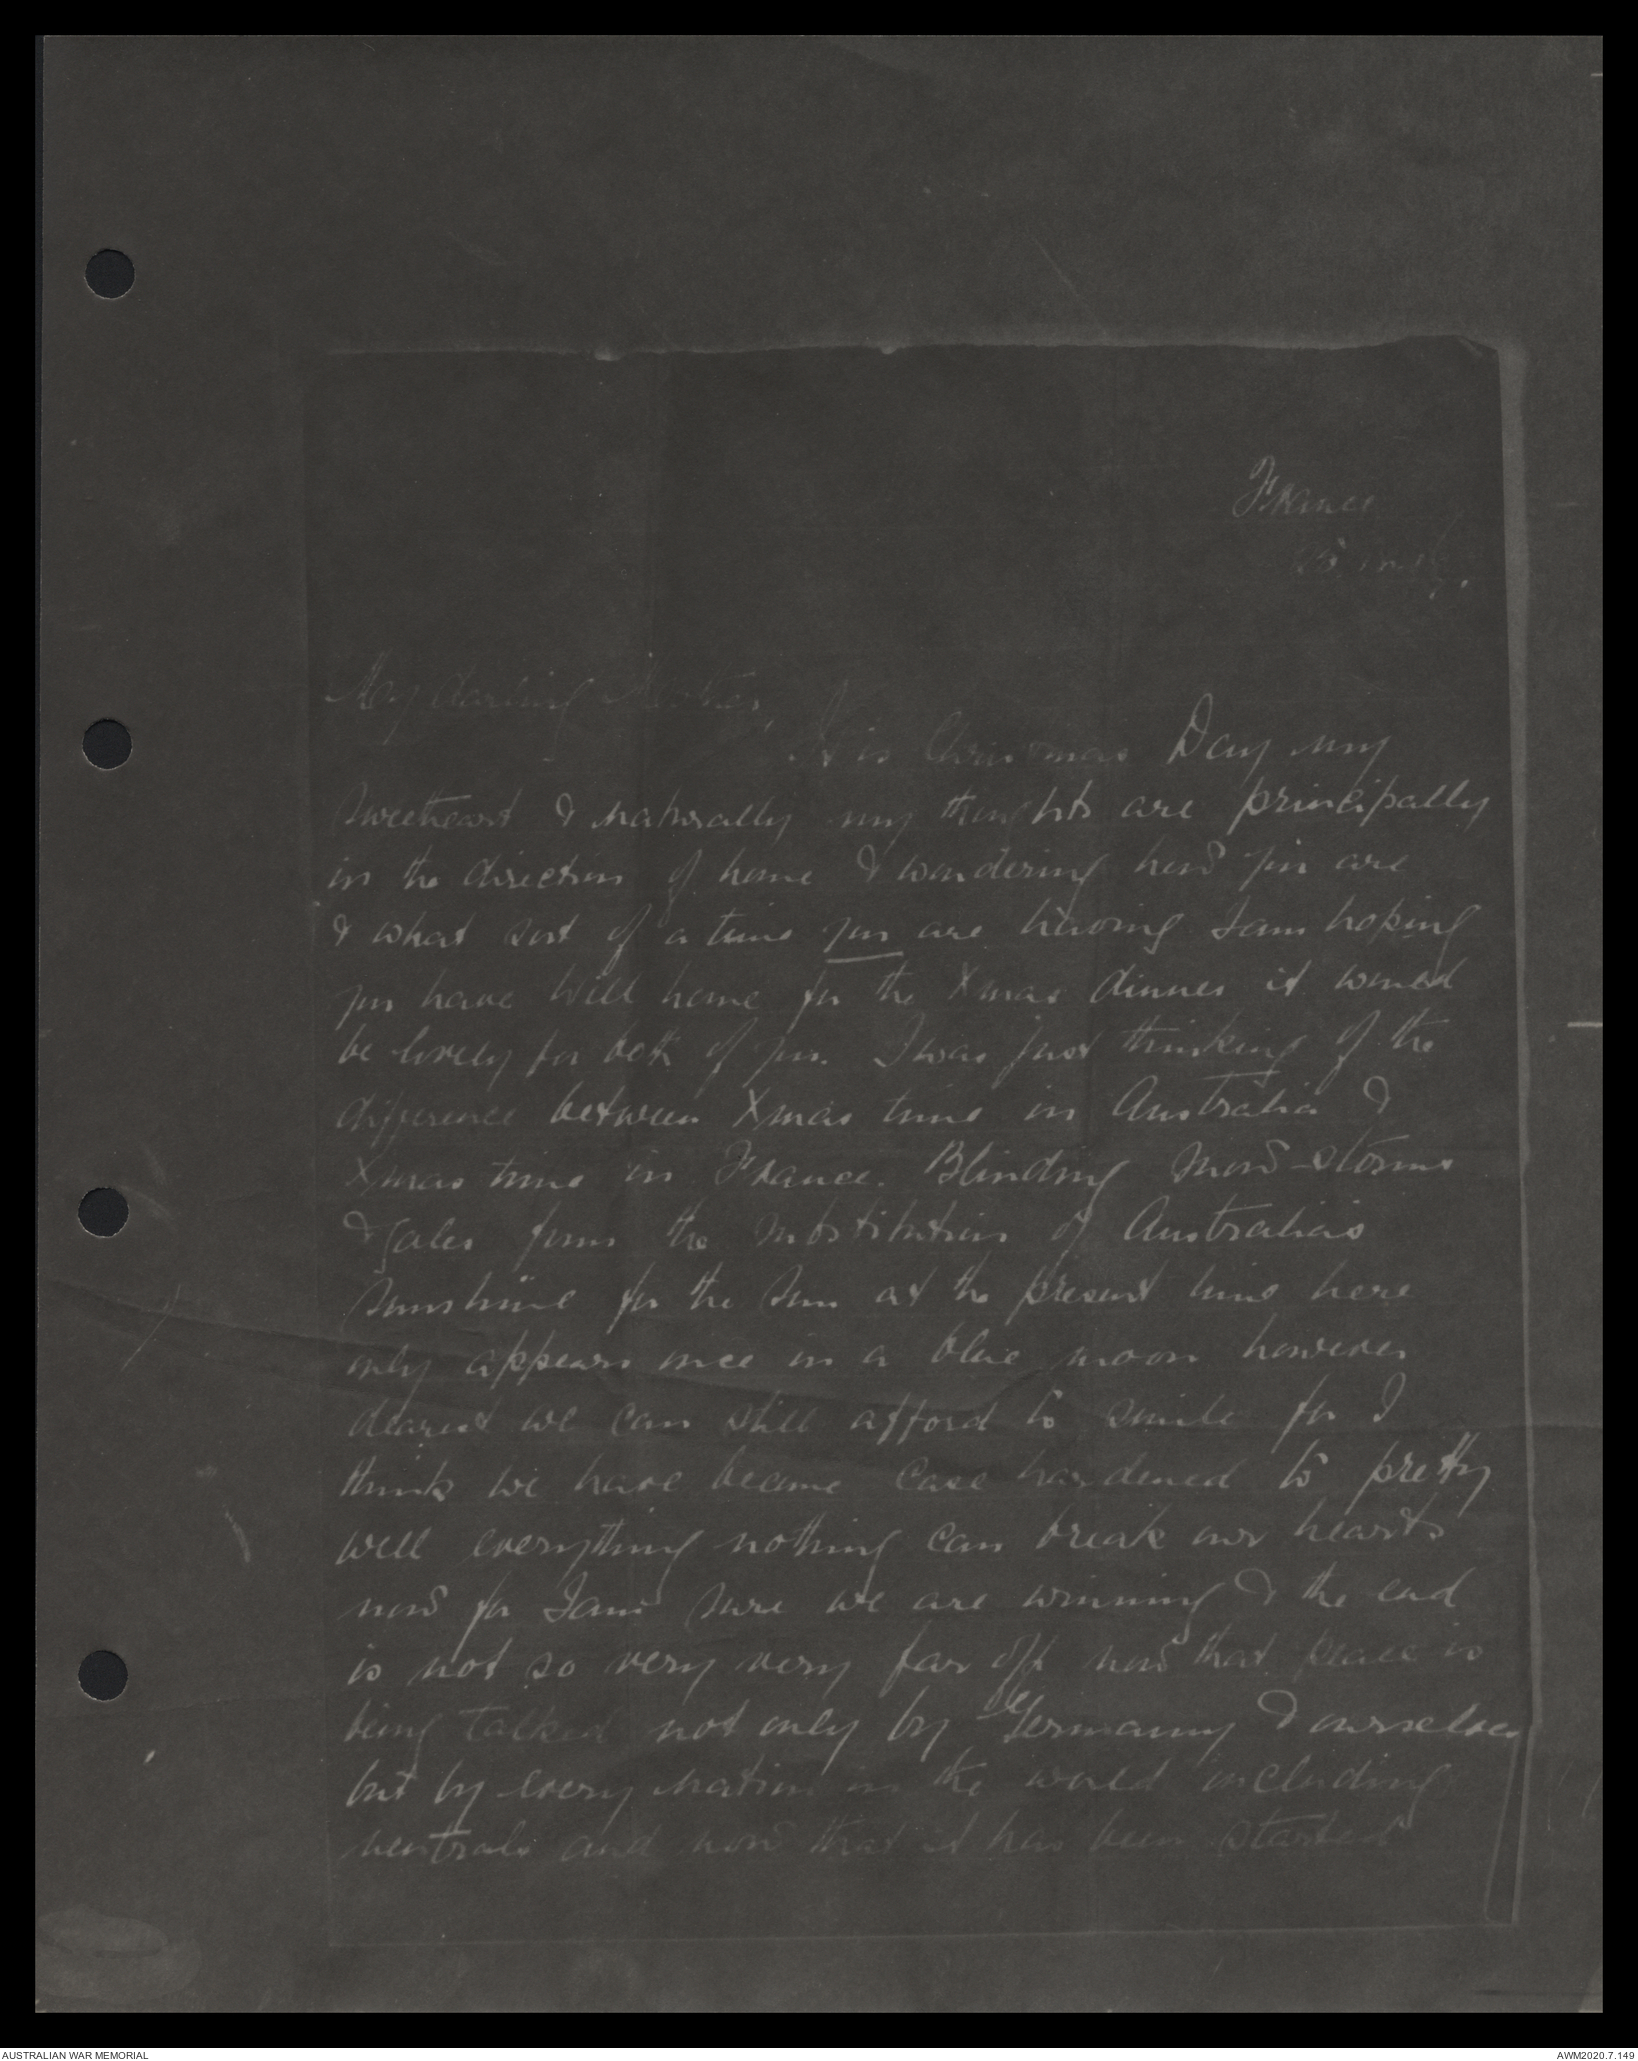 France
My darling Mother,
It is Christmas Day my
sweetheart & naturally my thoughts are principally
in the direction of home & wondering how you are
& what sort of a time you are having I am hoping
you have Will home for the Xmas dinner it would
be lovely for both of you. I was just thinking of the
difference between Xmas time in Australia &
Xmas time in France. Blinding snow-storms
& gales form the substitution of Australia's
sunshine for the sun at the present time here
only appears once in a blue moon however
dearest we can still afford to smile for I
think we have become case hardened to pretty
well everything nothing can break our hearts
now for I am sure we are winning & the end
is not so very very far off now that peace is
being talked not only by Germany & ourselves
but by every nation in the world including
neutrals and now that it has been started
AUSTRALIAN WAR MEMORIAL
AWM2020.7.149